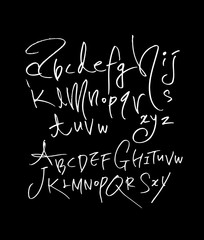 abcdefghij
klmnopqrs
tuvw xyz
ABCDEFGHITUVW
JKLMNOPQRSXY